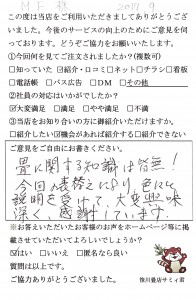 MF 様 2017.9
この度は当店をご利用いただきましてありがとうござ
いました。今後のサービスの向上のためにご意見を伺
っております。どうぞご協力をお願いいたします。
①今回何をみてご注文されましたか？(複数可)
□知っていた □紹介・口コミ □ネット □チラシ □看板
□電話帳 □バス広告 □DM □その他
②社員の対応はいかがでしたか？
☑大変満足 □満足 □やや不満 □不満
③当店をお知り合いの方に御紹介いただけますか。
□紹介したい □機会があれば紹介する □紹介できない
ご意見をご自由にお書きください。
畳に関する知識は皆無！
今回の表替えにあたり色々と
説明を受けて、大変興味
深く、感謝しています。
※お答えいただいたお客様のお声をホームページ等に掲
載させていただいてよろしいでしょうか？
☑はい □いいえ □匿名なら良い
質問は以上です。
ご協力ありがとうございました。
笹川畳店サミィ君